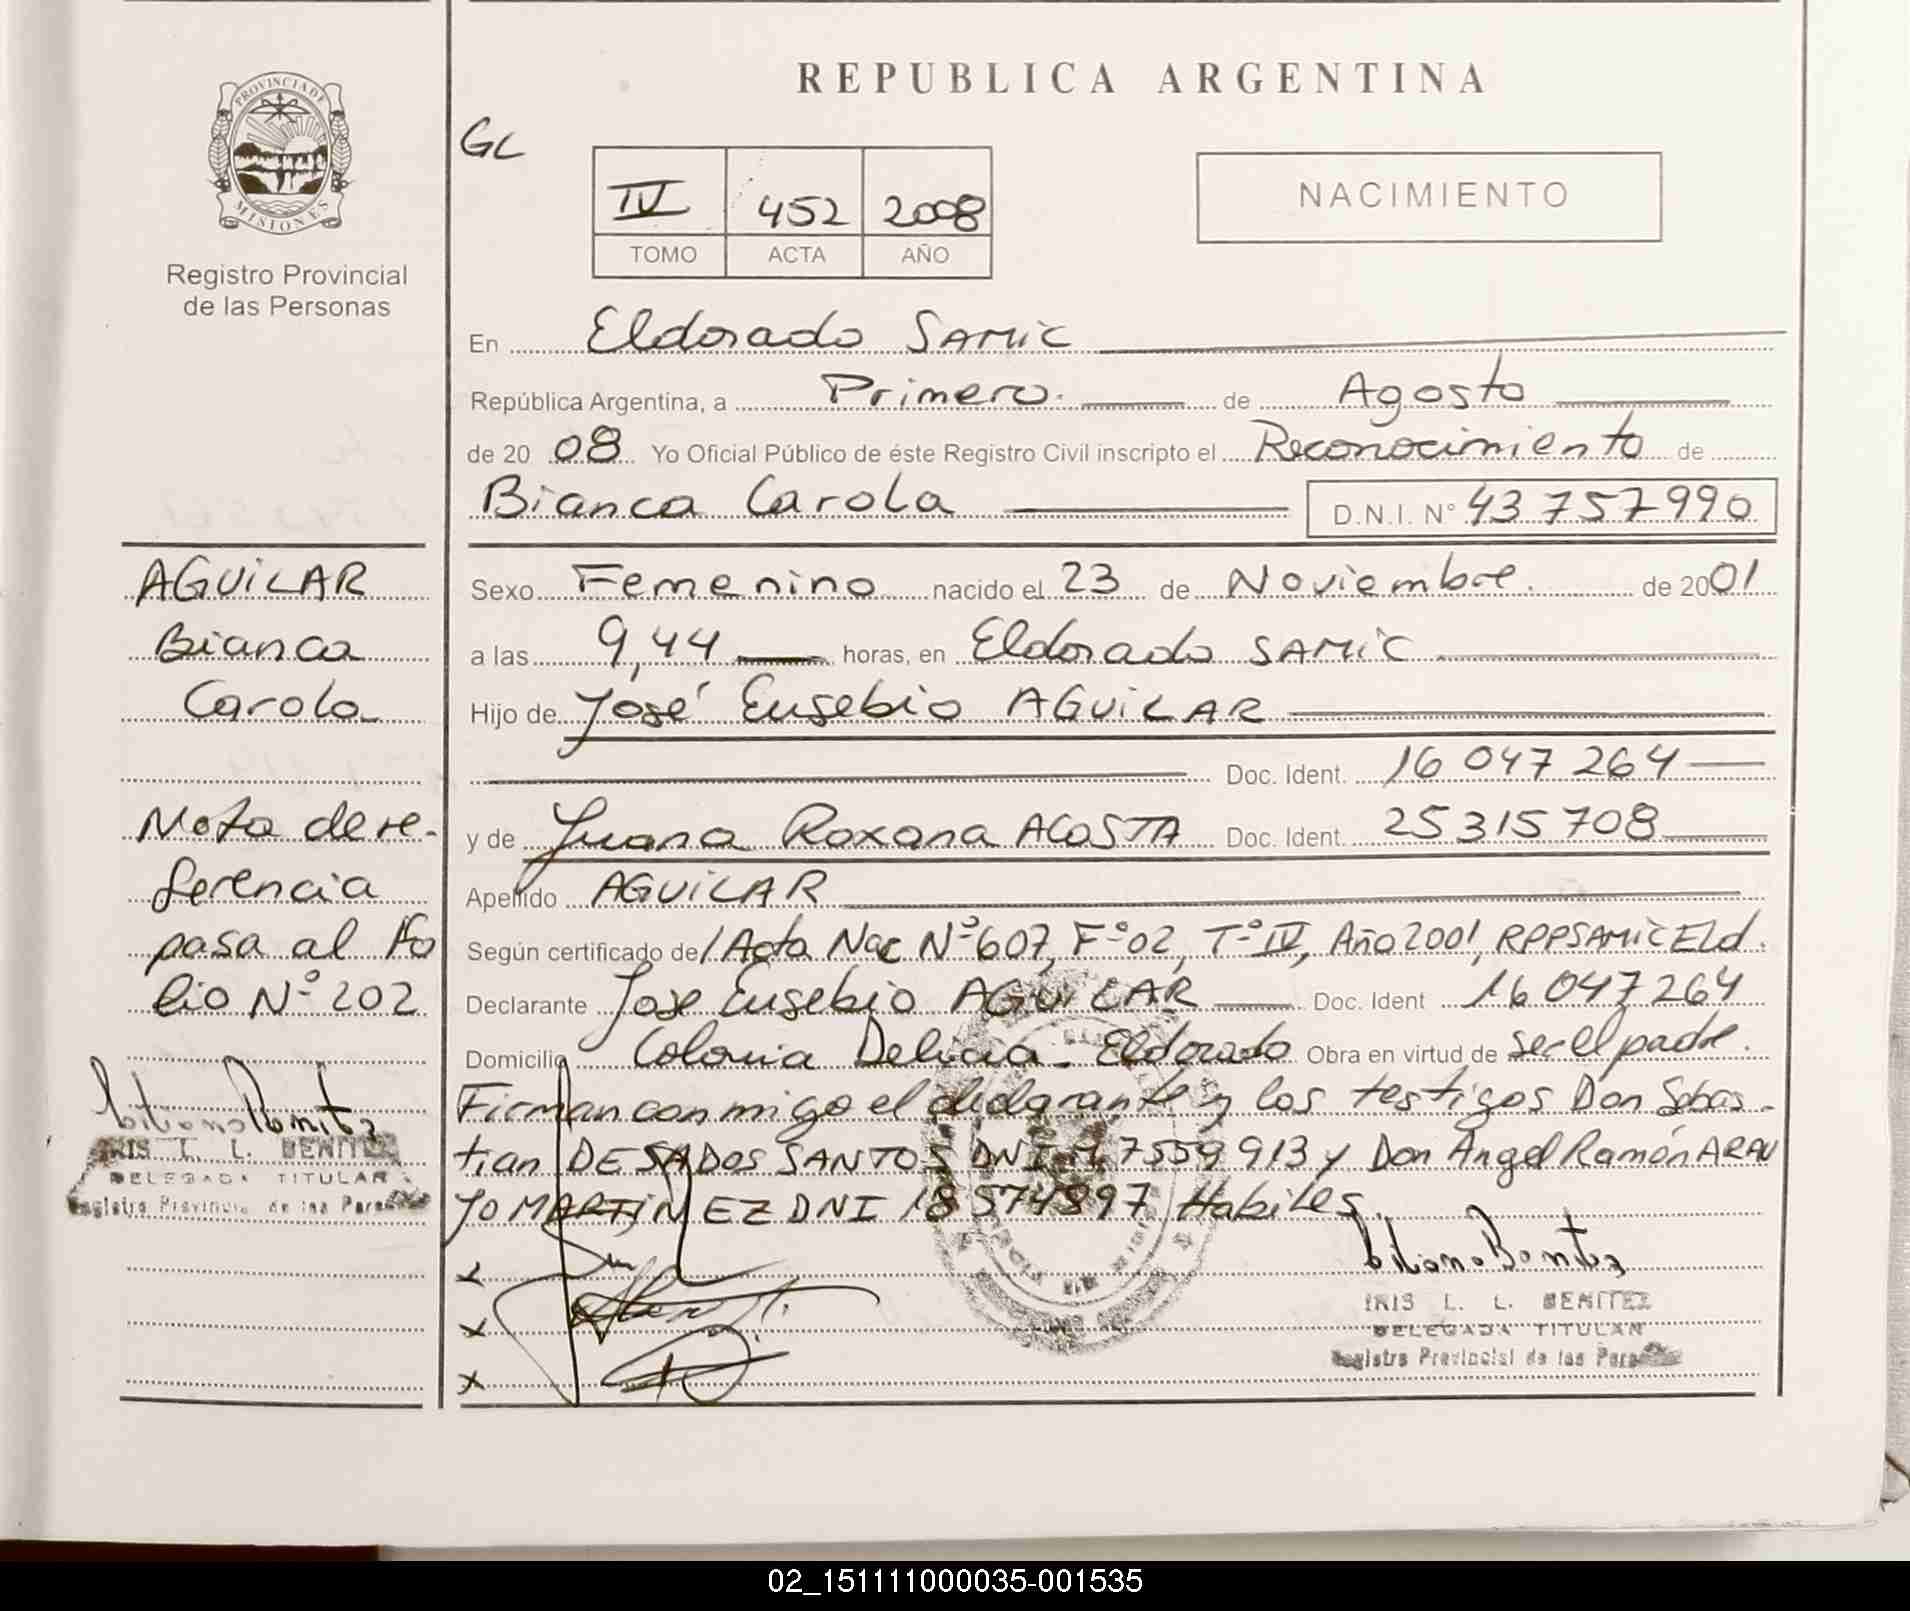 REPUBLICA ARGENTINA
PROVINCIA DE
MISIONES
Registro Provincial
de las Personas
GL
IV 452 2008
TOMO ACTA AÑO
NACIMIENTO
En Eldorado SAMiC
República Argentina, a Primero. de Agosto
de 20 08 Yo Oficial Público de éste Registro Civil inscripto el Reconocimiento de
Bianca Carola D.N.I. N° 43 757990
AGUiLAR
Bianca
Carola
Nota de re-
ferencia
pasa al Fo
lio Nº 202
IRIS L. L. BENITEZ
DELEGADA TITULAR
Registro Provincial de las Personas
Sexo Femenino nacido el 23 de Noviembre. de 2001
a las 9,44 horas, en Eldorado SAMiC
Hijo de José Eusebio AGUiLAR
Doc. Ident. 16 047 264
y de Juana Roxana ACOSTA Doc. Ident. 25 315 708
Apellido AGUiLAR
Según certificado de / Acta Nac Nº 607, Fº 02, Tº IV, Año 2001, RPPSAMiC Eld.
Declarante Jose Eusebio AGUiLAR Doc. Ident 16 047 264
Domicilio Colonia Delicia - Eldorado Obra en virtud de ser el padre.
Firman conmigo el declarante y los testigos Don Sebas-
tian DESADOS SANTOS DNI M 7559 913 y Don Angel Ramón ARAU
JO MARTiNEZ DNI 18 574897 Habiles.
x
x
IRIS L. L. BENITEZ
DELEGADA TITULAR
Registro Provincial de las Personas
02_151111000035-001535